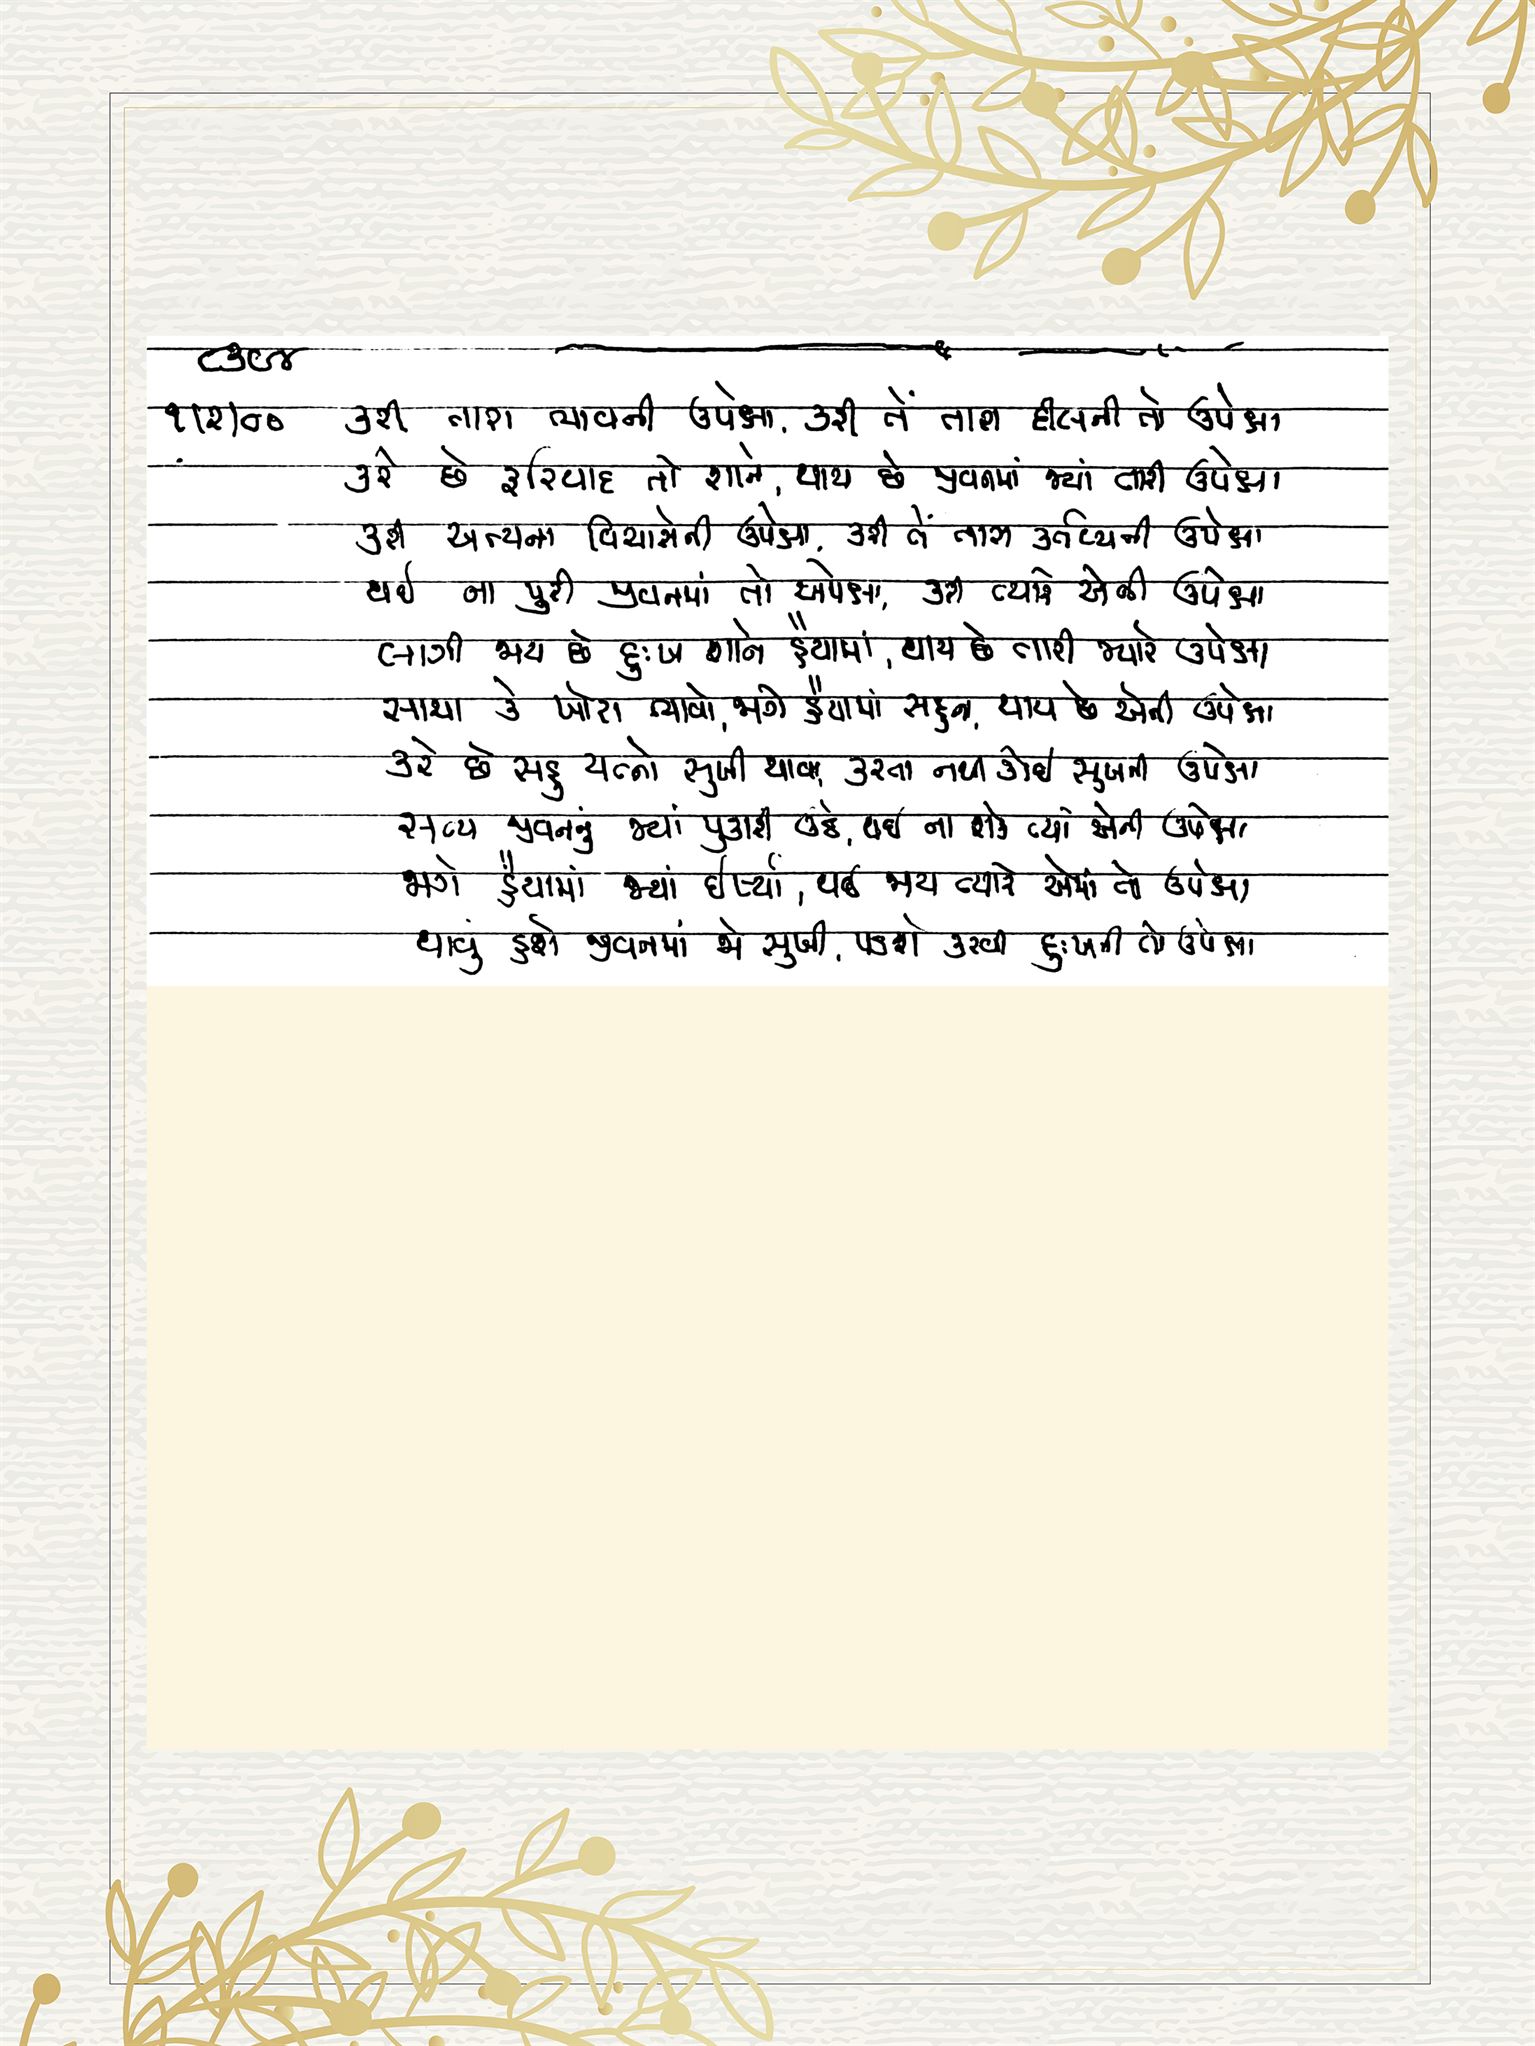 ૮૩૯૪
૧।૨।૦૦ કરી તારા ભાવની ઉપેક્ષા, કરી તેં તારા દીલની તો ઉપેક્ષા
કરે છે ફરિયાદ તો શાને, થાય છે જીવનમાં જ્યાં તારી ઉપેક્ષા
કરી અન્યના વિચારોની ઉપેક્ષા, કરી તેં તારા કર્તવ્યની ઉપેક્ષા
થઈ ના પુરી જીવનમાં તો અપેક્ષા, કરી ત્યારે એની ઉપેક્ષા
લાગી જાય છે દુઃખ શાને હૈયામાં, થાય છે તારી જ્યારે ઉપેક્ષા
સાચા કે ખોટા ભાવો, જાગે હૈયામાં સહુના, થાય છે એની ઉપેક્ષા
કરે છે સહુ યત્નો સુખી થાવા, કરતા નથી કોઈ સુખની ઉપેક્ષા
સત્ય જીવનનું જ્યાં પુકારી ઉઠે, થઈ ના શકે ત્યાં એની ઉપેક્ષા
જાગે હૈયામાં જ્યાં ઈર્ષ્યા, થઈ જાય ત્યારે એમાં તો ઉપેક્ષા
થાવું હશે જીવનમાં જો સુખી, પડશે કરવી દુઃખની તો ઉપેક્ષા